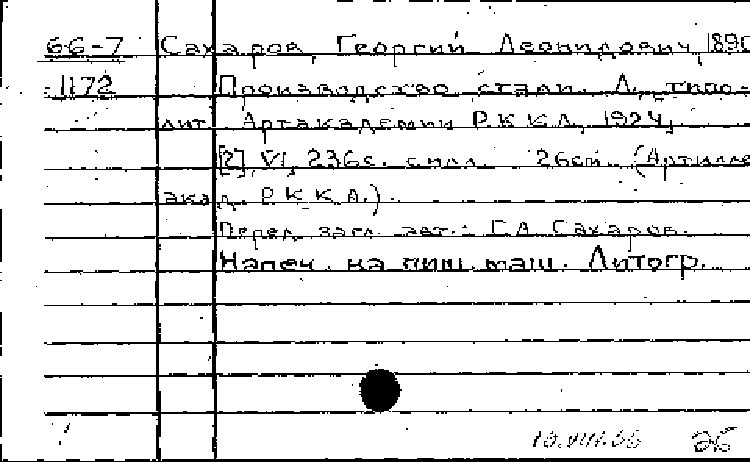 66-7 Сахаров, Георгий Леонидович, 1890
1172 Производство стали. Л., типо-
лит. Артакадемии Р.К.К.А., 1924,
[2], VI, 236с. с илл. 26см. (Артилле
акад. Р.К.К.А.).
Перед загл. авт.: Г.Л. Сахаров.
Напеч. на пиш. маш. Литогр.
10.VIII.66 26